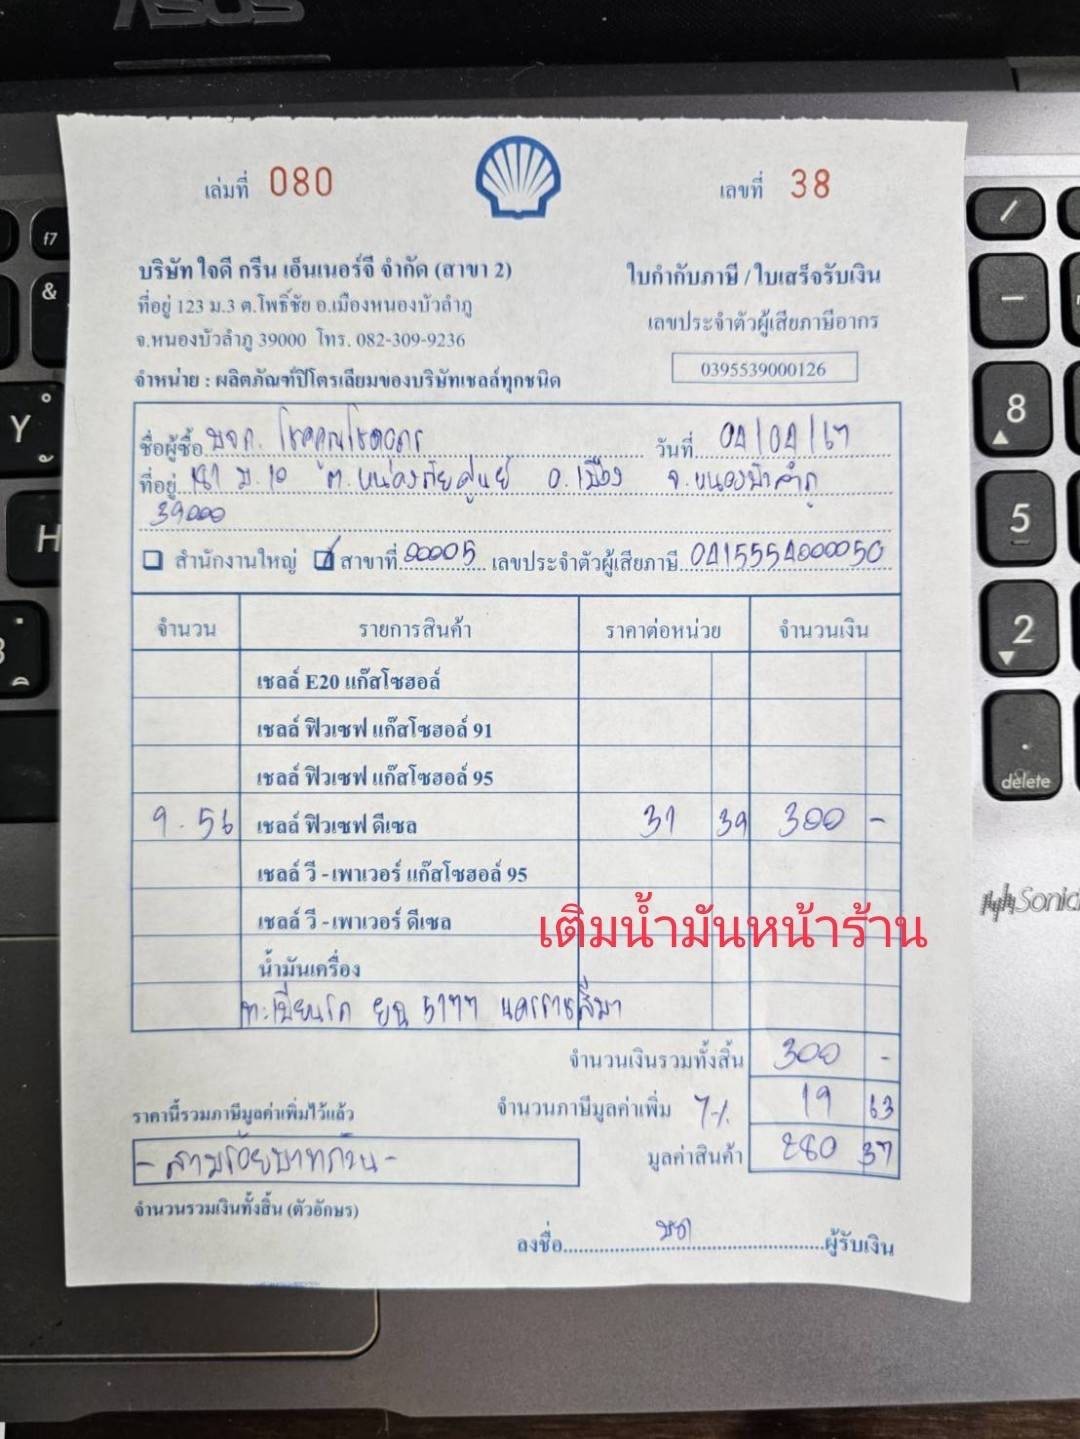 ASUS
เล่มที่ 080
เลขที่ 38
บริษัท ใจดี กรีน เอ็นเนอร์จี จำกัด (สาขา 2)
ใบกำกับภาษี / ใบเสร็จรับเงิน
ที่อยู่ 123 ม.3 ต.โพธิ์ชัย อ.เมืองหนองบัวลำภู
เลขประจำตัวผู้เสียภาษีอากร
จ.หนองบัวลำภู 39000 โทร. 082-309-9236
0395539000126
จำหน่าย : ผลิตภัณฑ์ปิโตรเลียมของบริษัทเชลล์ทุกชนิด
ชื่อผู้ซื้อ หจก. โชคคูณโชคอุดร วันที่ 04/04/67
ที่อยู่ 181 ม.10 ต.หนองภัยศูนย์ อ.เมือง จ.หนองบัวลำภู
39000
สำนักงานใหญ่ สาขาที่ 00005 เลขประจำตัวผู้เสียภาษี 0415554000050
จำนวน รายการสินค้า ราคาต่อหน่วย จำนวนเงิน
เชลล์ E20 แก๊สโซฮอล์
เชลล์ ฟิวเซฟ แก๊สโซฮอล์ 91
เชลล์ ฟิวเซฟ แก๊สโซฮอล์ 95
9.56 เชลล์ ฟิวเซฟ ดีเซล 31 39 300 -
เชลล์ วี -เพาเวอร์ แก๊สโซฮอล์ 95
เชลล์ วี -เพาเวอร์ ดีเซล
เติมน้ำมันหน้าร้าน
น้ำมันเครื่อง
ทะเบียนรถ 5177 นครราชสีมา
จำนวนเงินรวมทั้งสิ้น 300 -
ราคานี้รวมภาษีมูลค่าเพิ่มไว้แล้ว
จำนวนภาษีมูลค่าเพิ่ม 7% 19 63
- สามร้อยบาทถ้วน -
มูลค่าสินค้า 280 37
จำนวนรวมเงินทั้งสิ้น (ตัวอักษร)
ลงชื่อ ผู้รับเงิน
f7
&
Y
H
/
8
5
2
delete
Sonic